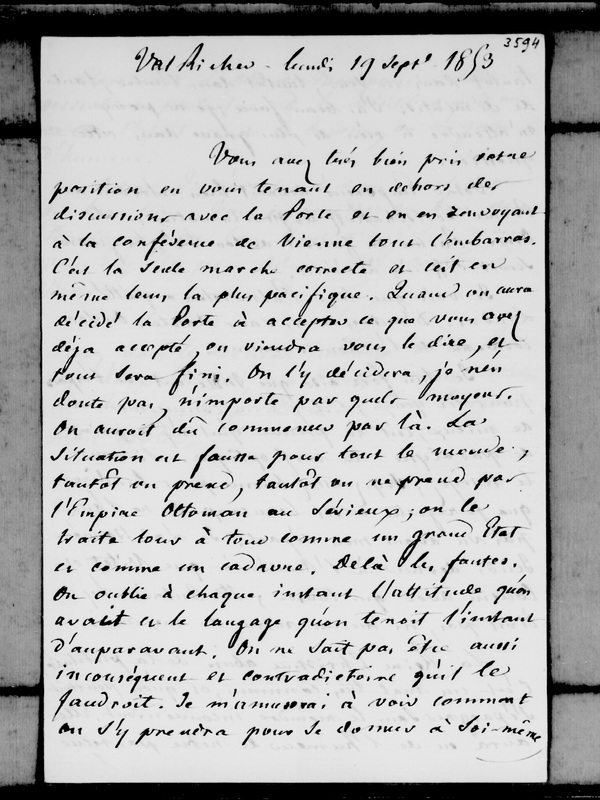 3594
Val Richer - lundi 19 sept. 1853
Vous avez très bien pris votre
position en vous tenant en dehors des
discussions avec la Porte et en en renvoyant
à la conférence de Vienne tout l'embarras.
C'est la seule marche correcte et c'est en
même tems la plus pacifique. Quand on aura
décidé la Porte à accepter ce que vous avez
déja accepté, on viendra vous le dire, et
tout sera fini. On l'y décidera, je n'en
doute pas, n'importe par quels moyens.
On auroit dû commencer par là. La
situation est fausse pour tout le monde ;
tantôt on prend, tantôt on ne prend pas
l'Empire Ottoman au sérieux ; on le
traite tour à tour comme un grand Etat
et comme un cadavre. Delà les fautes.
On oublie à chaque instant l'attitude qu'on
avait et le langage qu'on tenoit l'instant
d'auparavant. On ne sait pas être aussi
inconséquent et contradictoire qu'il le
faudroit. Je m'amuserai à voir comment
on s'y prendra pour se donner à soi-même